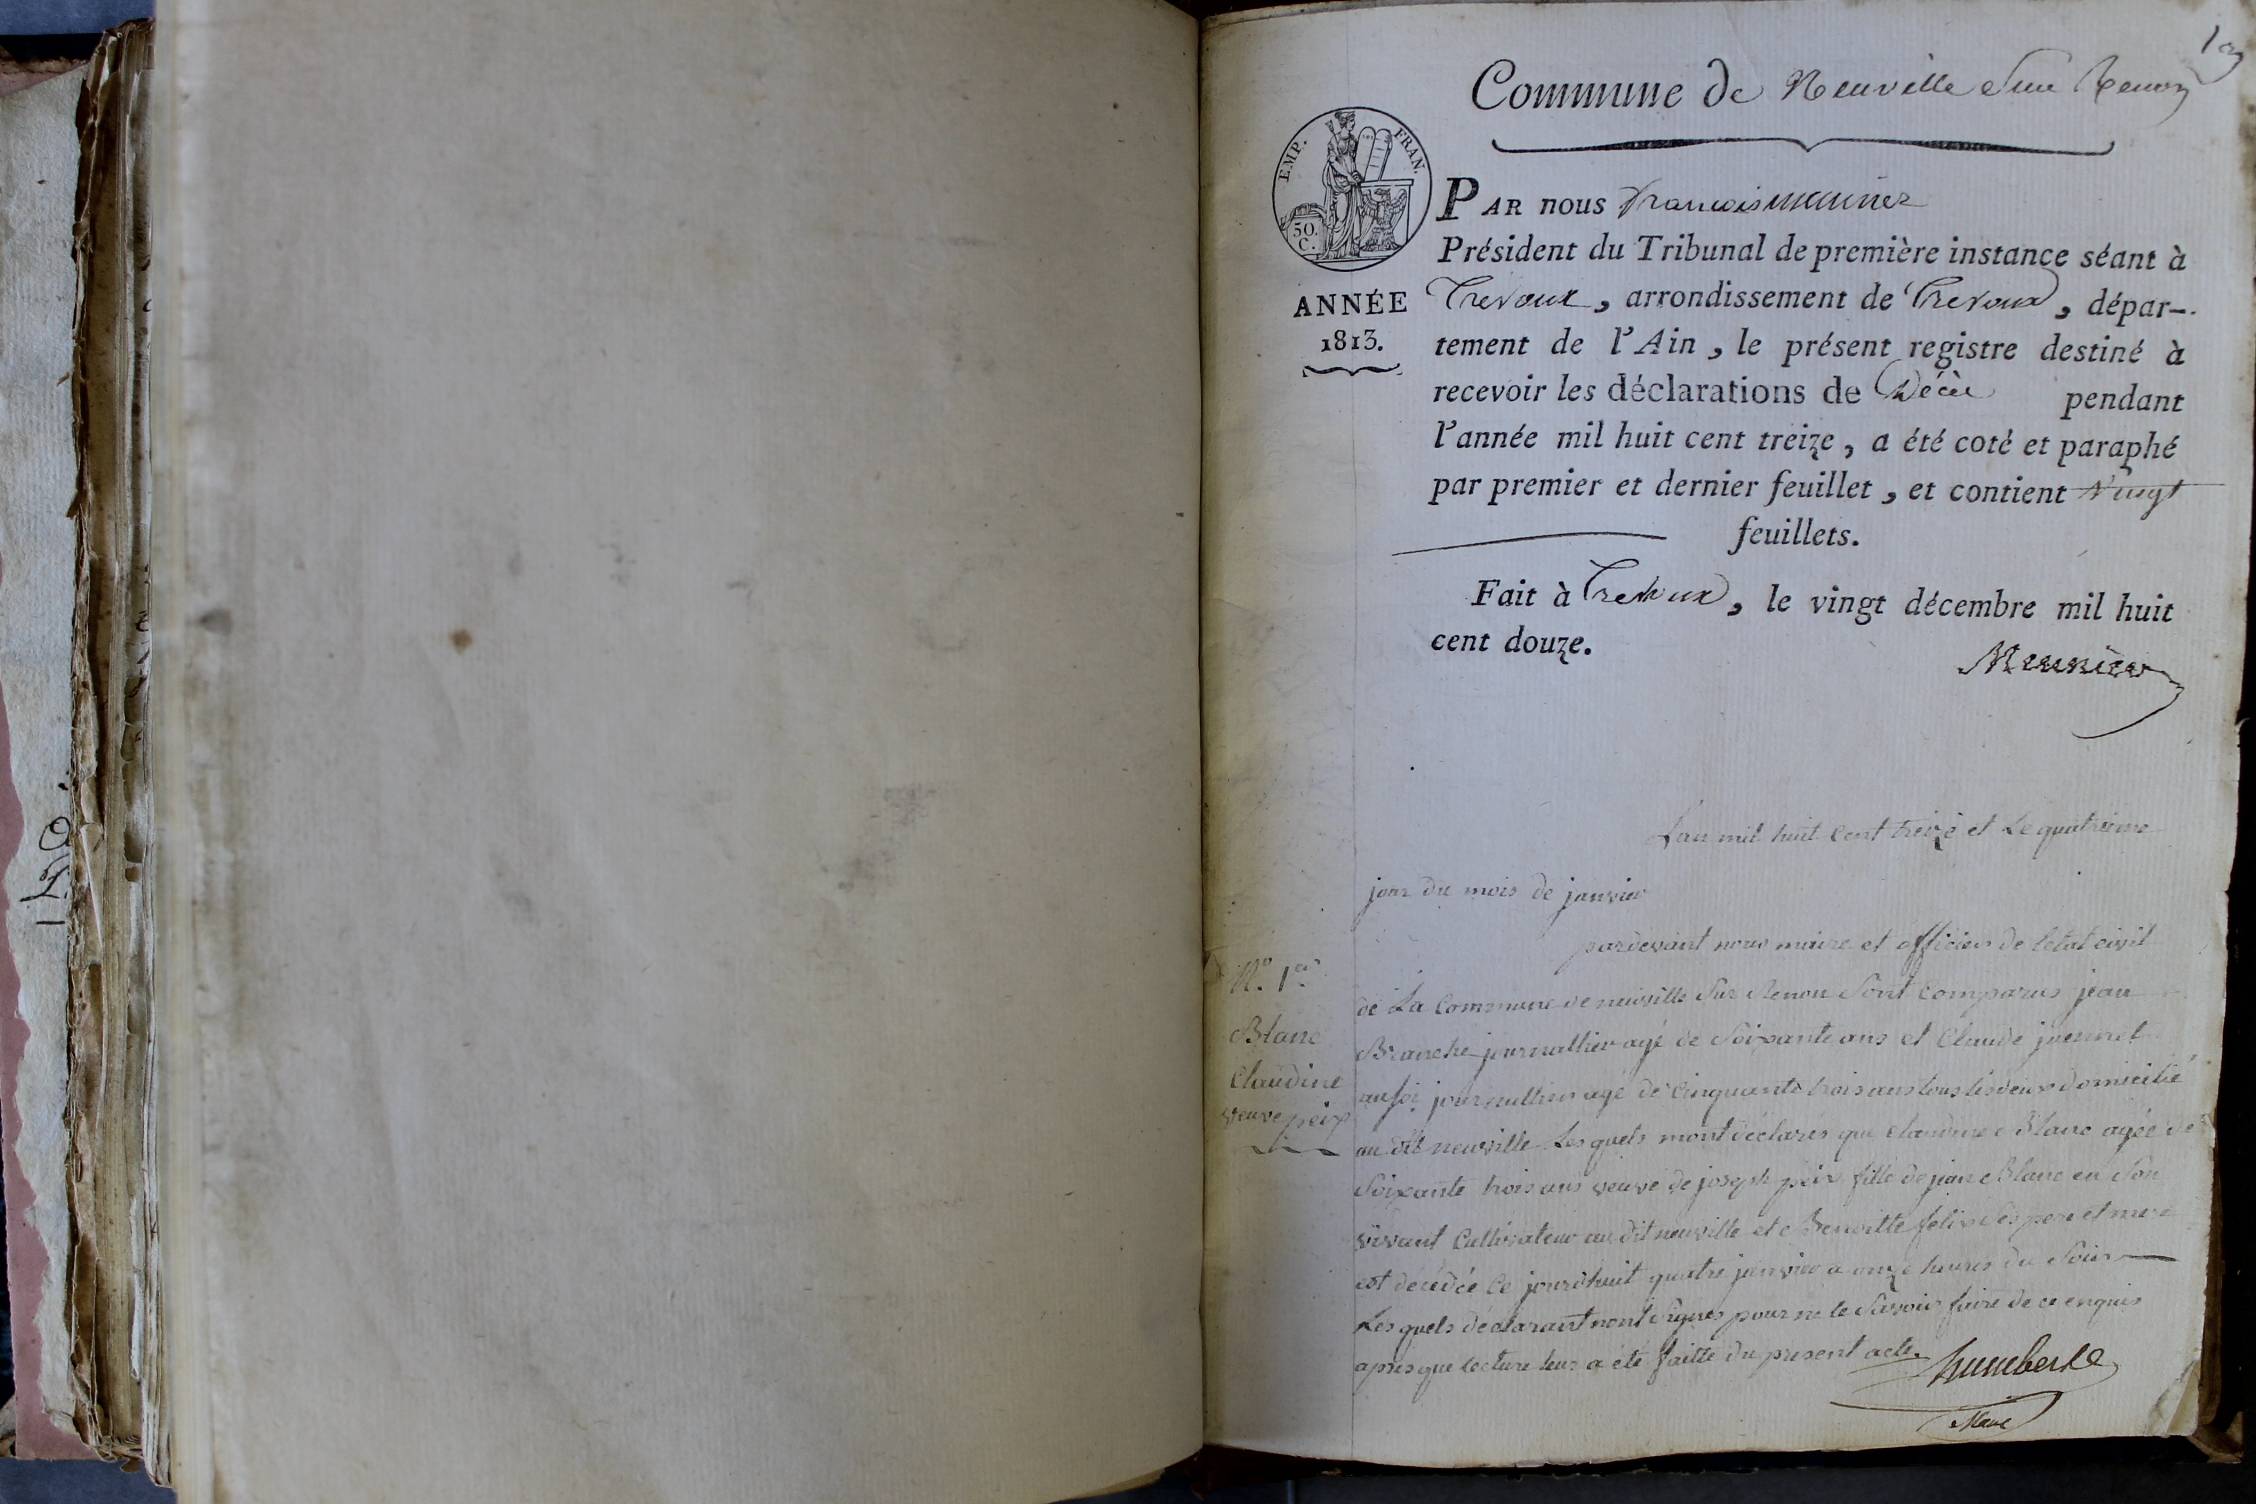 1
Commune de Neuville Sur Renon
EMP. FRAN.
50. C.
ANNÉE
1813.
PAR nous francois meunier
Président du Tribunal de première instance séant à
Trevoux, arrondissement de Trevoux, dépar-
tement de l'Ain, le présent registre destiné à
recevoir les déclarations de Décès pendant
l'année mil huit cent treize, a été coté et paraphé
par premier et dernier feuillet, et contient Vingt
feuillets.
Fait à Trevoux, le vingt décembre mil huit
cent douze.
Meunier
Lan mil huit cent treize et Le quatrieme
jour du mois de janvier
pardevant nous maire et officier de letat civil
de La Commune de neuville Sur Renon Sont comparus jean
Branche journallier agé de Soixante ans et Claude
aussi journallier agé de Cinquante trois ans tous les deux domicilié
au dit neuville Les quels mont déclarés que claudine Blanc agée de
Soixante trois ans veuve de joseph peix fille de jean Blanc en Son
vivant Cultivateur au dit neuville et Benoitte felix Ses pere et mere
est décédée Ce jourdhuit quatre janvier a onze heures du Soir
Les quels déclarant nont Signés pour ne le Savoir faire de ce enquis
apres que lecture leur a été faitte du present acte.
N.o 1er
Blanc
Claudine
veuve peix
humberte
Maire